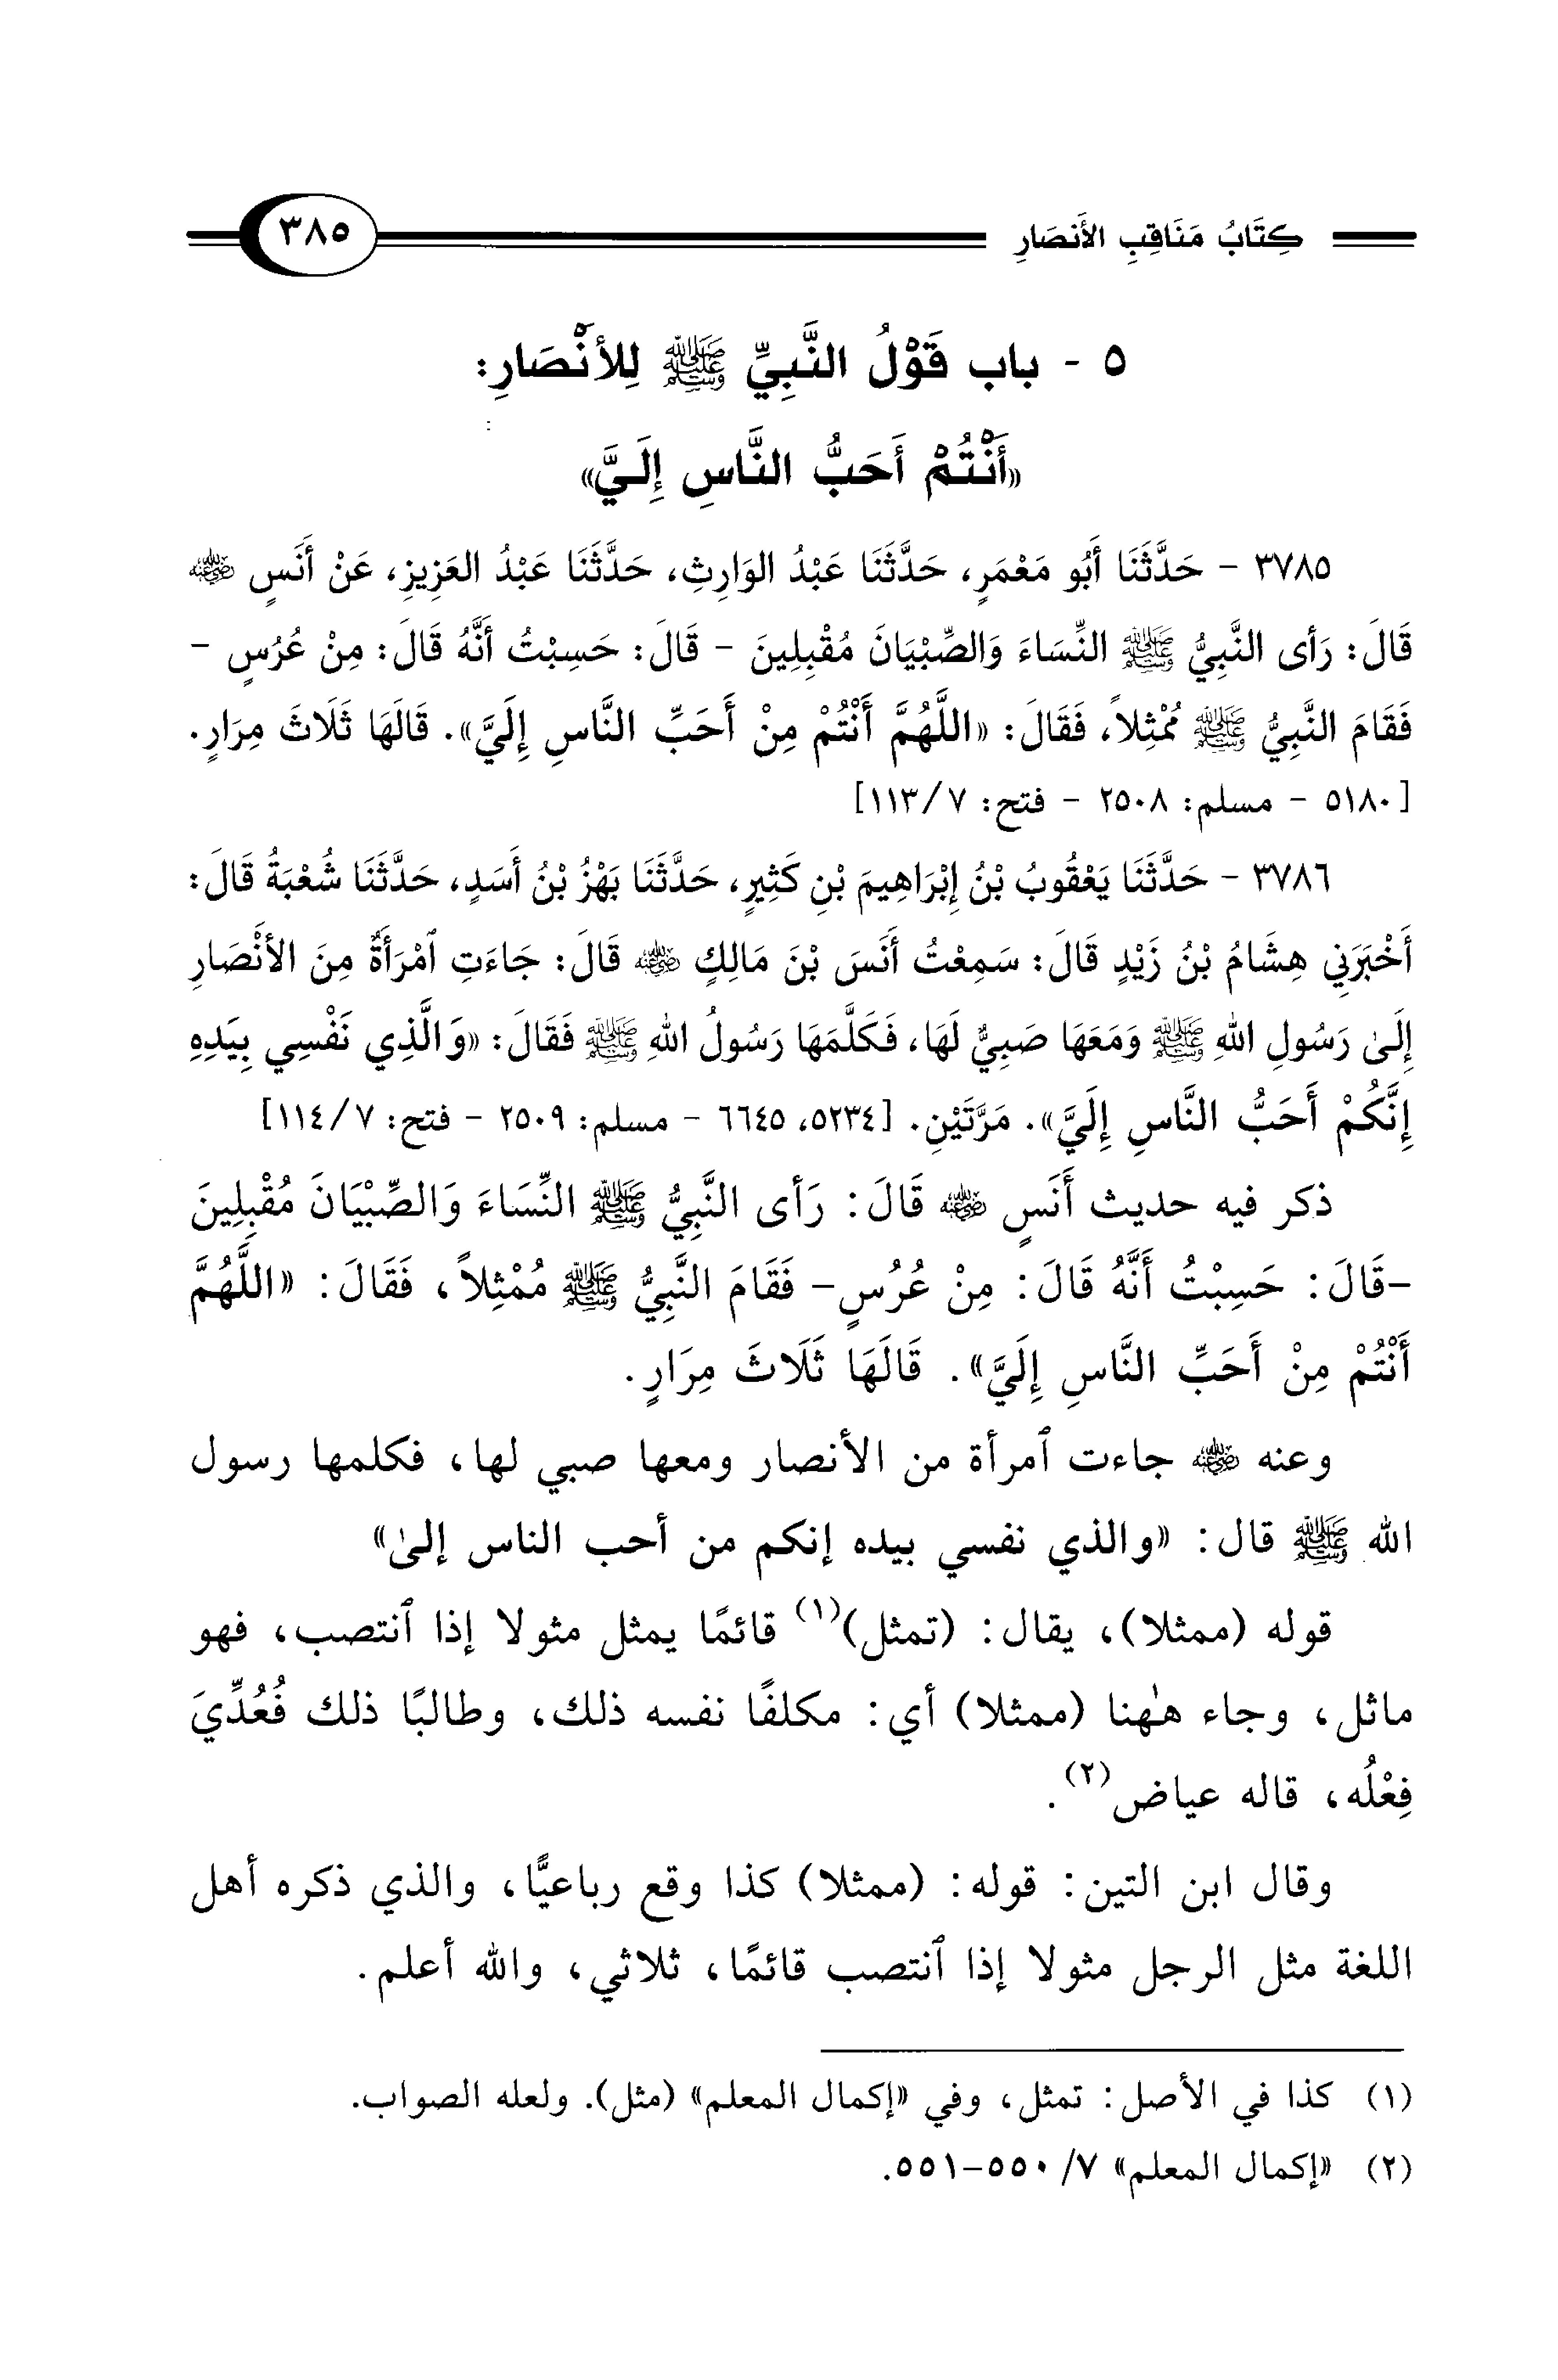 كِتَابُ مَنَاقِبِ الأَنصَارِ ٣٨٥
٥ - باب قَوْلُ النَّبِيِّ ﷺ لِلأَنْصَارِ:
«أَنْتُمْ أَحَبُّ النَّاسِ إِلَيَّ»
٣٧٨٥ - حَدَّثَنَا أَبُو مَعْمَرٍ، حَدَّثَنَا عَبْدُ الوَارِثِ، حَدَّثَنَا عَبْدُ العَزِيزِ، عَنْ أَنَسٍ رضي الله عنه
قَالَ: رَأَى النَّبِيُّ ﷺ النِّسَاءَ وَالصِّبْيَانَ مُقْبِلِينَ - قَالَ: حَسِبْتُ أَنَّهُ قَالَ: مِنْ عُرُسٍ -
فَقَامَ النَّبِيُّ ﷺ مُمْثِلاً، فَقَالَ: «اللَّهُمَّ أَنْتُمْ مِنْ أَحَبِّ النَّاسِ إِلَيَّ». قَالَهَا ثَلَاثَ مِرَارٍ.
[٥١٨٠ - مسلم: ٢٥٠٨ - فتح: ٧/١١٣]
٣٧٨٦ - حَدَّثَنَا يَعْقُوبُ بْنُ إِبْرَاهِيمَ بْنِ كَثِيرٍ، حَدَّثَنَا بَهْزُ بْنُ أَسَدٍ، حَدَّثَنَا شُعْبَةُ قَالَ:
أَخْبَرَنِي هِشَامُ بْنُ زَيْدٍ قَالَ: سَمِعْتُ أَنَسَ بْنَ مَالِكٍ رضي الله عنه قَالَ: جَاءَتِ ٱمْرَأَةٌ مِنَ الأَنْصَارِ
إِلَىٰ رَسُولِ اللهِ ﷺ وَمَعَهَا صَبِيٌّ لَهَا، فَكَلَّمَهَا رَسُولُ اللهِ ﷺ فَقَالَ: «وَالَّذِي نَفْسِي بِيَدِهِ
إِنَّكُمْ أَحَبُّ النَّاسِ إِلَيَّ». مَرَّتَيْنِ. [٥٢٣٤، ٦٦٤٥ - مسلم: ٢٥٠٩ - فتح: ٧/١١٤]
ذكر فيه حديث أَنَسٍ رضي الله عنه قَالَ: رَأَى النَّبِيُّ ﷺ النِّسَاءَ وَالصِّبْيَانَ مُقْبِلِينَ
-قَالَ: حَسِبْتُ أَنَّهُ قَالَ: مِنْ عُرُسٍ- فَقَامَ النَّبِيُّ ﷺ مُمْثِلاً، فَقَالَ: «اللَّهُمَّ
أَنْتُمْ مِنْ أَحَبِّ النَّاسِ إِلَيَّ». قَالَهَا ثَلَاثَ مِرَارٍ.
وعنه رضي الله عنه جاءت ٱمرأة من الأنصار ومعها صبي لها، فكلمها رسول
الله ﷺ قال: «والذي نفسي بيده إنكم من أحب الناس إلىٰ»
قوله (ممثلا)، يقال: (تمثل)(١) قائمًا يمثل مثولا إذا ٱنتصب، فهو
ماثل، وجاء هٰهنا (ممثلا) أي: مكلفًا نفسه ذلك، وطالبًا ذلك فُعُدِّيَ
فِعْلُه، قاله عياض(٢).
وقال ابن التين: قوله: (ممثلا) كذا وقع رباعيًّا، والذي ذكره أهل
اللغة مثل الرجل مثولا إذا ٱنتصب قائمًا، ثلاثي، والله أعلم.
(١) كذا في الأصل: تمثل، وفي «إكمال المعلم» (مثل). ولعله الصواب.
(٢) «إكمال المعلم» ٧/ ٥٥٠-٥٥١.